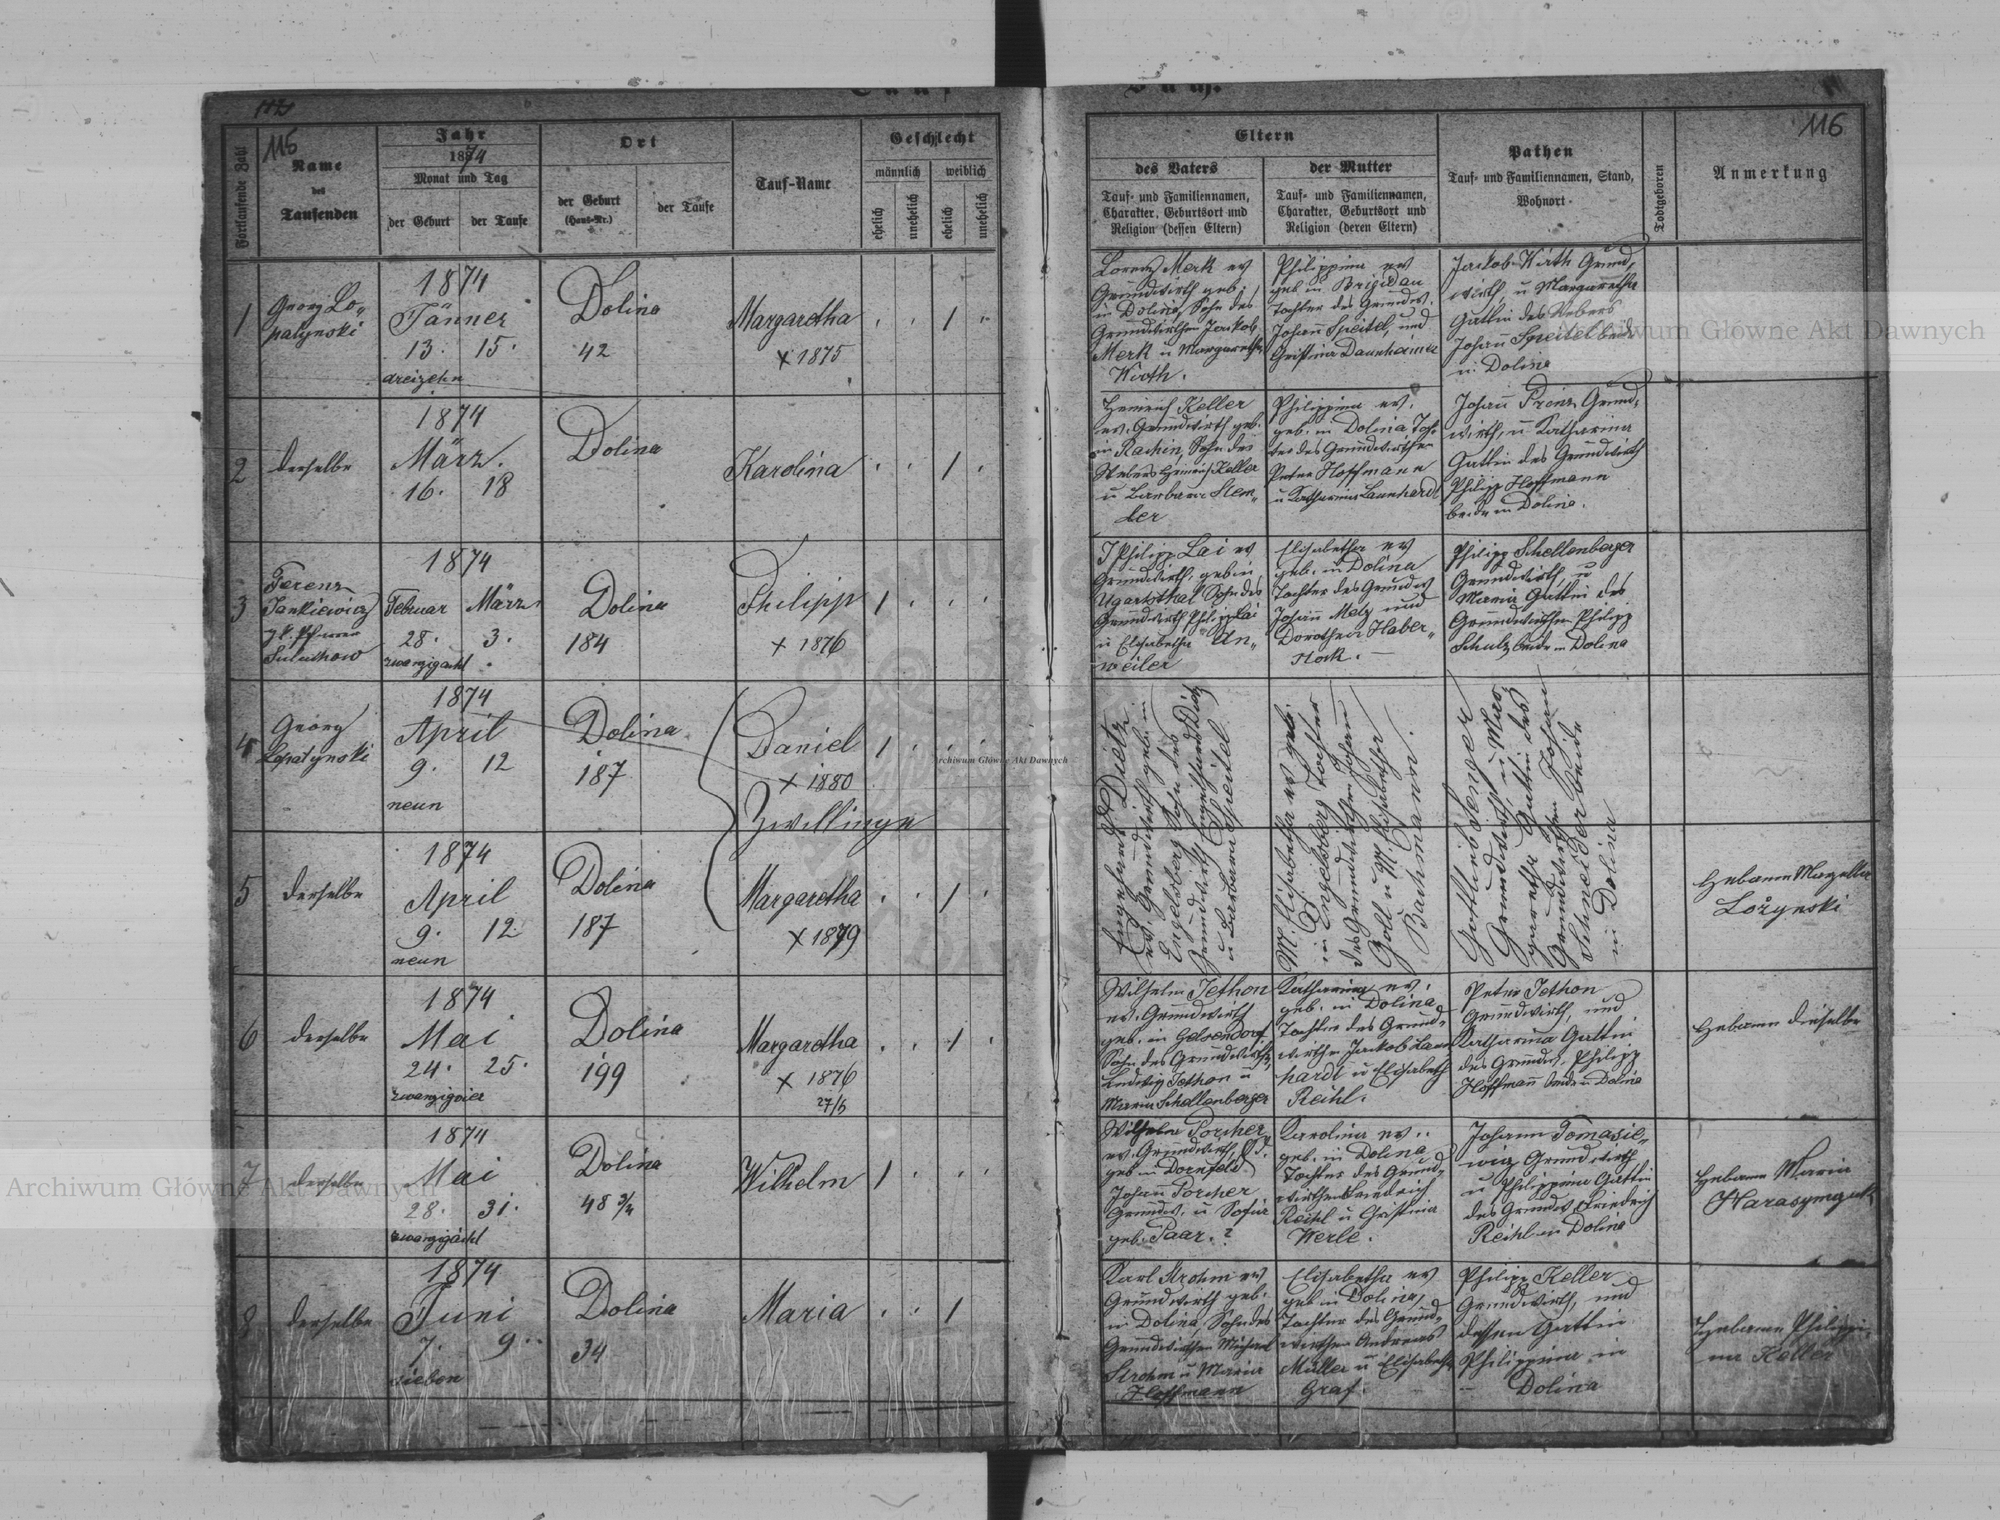 115
116
Tauf
Buch.
Fortlaufende Zahl
Name
des
Taufenden
Jahr
1874
Monat und Tag
der Geburt
der Taufe
Ort
der Geburt
(Haus-Nr.)
der Taufe
Tauf-Name
Geschlecht
männlich
weiblich
ehelich
unehelich
ehelich
unehelich
Eltern
des Vaters
Tauf- und Familiennamen,
Charakter, Geburtsort und
Religion (dessen Eltern)
der Mutter
Tauf- und Familiennamen,
Charakter, Geburtsort und
Religion (deren Eltern)
Pathen
Tauf- und Familiennamen, Stand,
Wohnort.
Todtgeboren
Anmerkung
1
Georg Lo„
patynski
1874
Jänner
13. 15.
dreizehn
Dolina
42
Margaretha
+ 1875
1
Lorenz Merk ev
Grundwirth geb.
in Dolina, Sohn des
Grundwirthen Jackob
Merk u Margaretha
Wirth.
Philippina ev
geb. in Brigidau
Tochter des Grundw.
Johann Speitel, und
Cristina Daunheimer
Jackob Wirth Grund„
wirth, u Margaretha
Gattin des Webers
Johann Speitel beide
in Dolina
2
derselbe
1874
März.
16. 18
Dolina
Karolina
1
Heinrich Keller
ev. Grundwirth geb.
in Rachin, Sohn des
Webers Heinrich Keller
u Barbara Stem„
ler
Philippina ev.
geb. in Dolina Toch„
ter des Grundwirthen
Peter Hoffmann
u Katharina Launhardt
Johann Prenz Grund„
wirth, u Katharina
Gattin des Grundwirth
Philipp Hoffmann
beide in Dolina.
3
Ferenz
Jankiewicz
Suluchow
1874
Februar März
28. 3.
zwanzigacht
Dolina
184
Philipp
+ 1876
1
Philipp Lai ev
Grundwirth, geb in
Ugartsthal Sohn des
Grundwirth Philipp Lai
u Elisabetha An„
weiler
Elisabetha ev
geb. in Dolina
Tochter des Grundw
Johann Metz und
Dorothea Haber„
stock. –
Philipp Schellenberger
Grundwirth, u
Maria Gattin des
Grundwirthen Philipp
Schulz beide in Dolina
4
Georg
Lopatynski
1874
April
9. 12
neun
Dolina
187
Daniel
+ 1880
Zwillinge
1
Dietz
ev. Grundwirth geb. in
Engelsberg Sohn des
Grundwirth Engelhard Dietz
u Barbara Speitel
M. Elisabetha ev geb.
in Engelsberg Tochter
des Grundwirthen Johann
Gohl u M. Elisabetha
Bachmann.
Gottlieb Senger
Grundwirth, u Mar„
garetha Gattin des
Grundwirthen Johann
Schneider beide
in Dolina
5
derselbe
1874
April
9. 12
neun
Dolina
187
Margaretha
+ 1879
1
Hebamme
Łożynski
6
derselbe
1874
Mai
24. 25.
zwanzigvier
Dolina
199
Margaretha
+ 1876
27/5
1
Wilhelm Jethon
ev. Grundwirth
geb. in Gelsendorf
Sohn des Grundwirthen
Ludwig Jethon u
Maria Schellenberger
Katharina ev.
geb. in Dolina
Tochter des Grund„
wirthen Jackob Laun„
hardt u Elisabeth
Reichl.
Peter Jethon
Grundwirth, und
Katharina Gattin
des Grundw. Philipp
Hoffmann beide in Dolina
Hebamme dieselbe
7
derselbe
1874
Mai
28. 31.
zwanzigacht
Dolina
48
Wilhelm
1
Wilhelm Porcher
ev. Grundwirth, S. d.
geb in Dornfeld
Johann Porcher
Grundw. u Sofia
geb. Paar. ?
Karolina ev.
geb. in Dolina
Tochter des Grund„
wirthen Friedrich
Reichl u Cristina
Werle.
Johann Tomasie„
wicz Grundwirth
u Philippina Gattin
des Grundw. Friedrich
Reichl in Dolina
Hebamme Maria
Harasymczuk
8
derselbe
1874
Juni
7. 9.
sieben
Dolina
34
Maria
1
Karl Strohm ev
Grundwirth geb.
in Dolina, Sohn des
Grundwirthen Michael
Strohm u Maria
Hoffmann
Elisabetha ev
geb in Dolina,
Tochter des Grund„
wirthen Andreas
Müller u Elisabetha
Graf.
Philipp Keller
Grundwirth, und
dessen Gattin
Philippina in
Dolina
Hebamme Philippi„
na Keller
Archiwum Główne Akt Dawnych
Archiwum Główne Akt Dawnych
Archiwum Główne Akt Dawnych